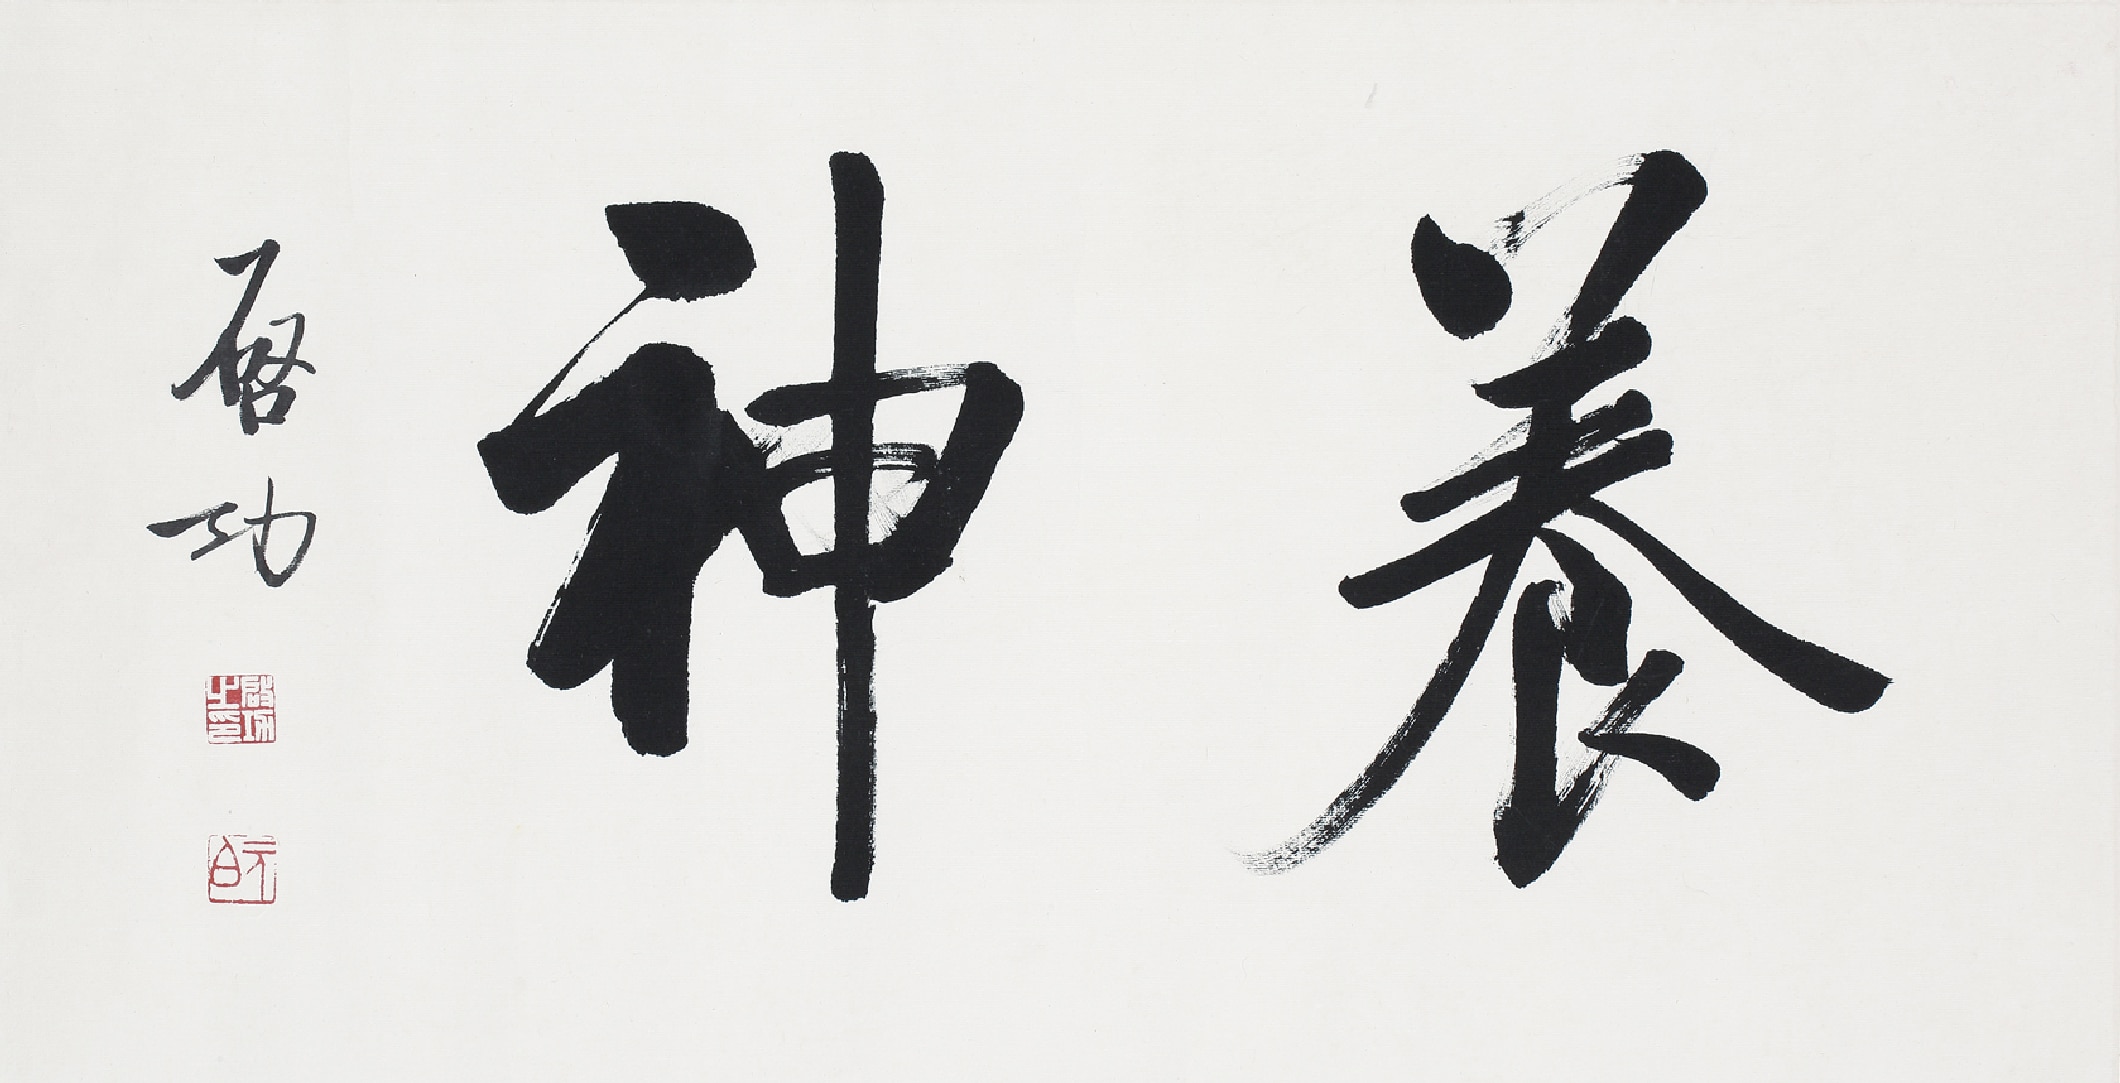 養神
啓功
啟功之印
元白